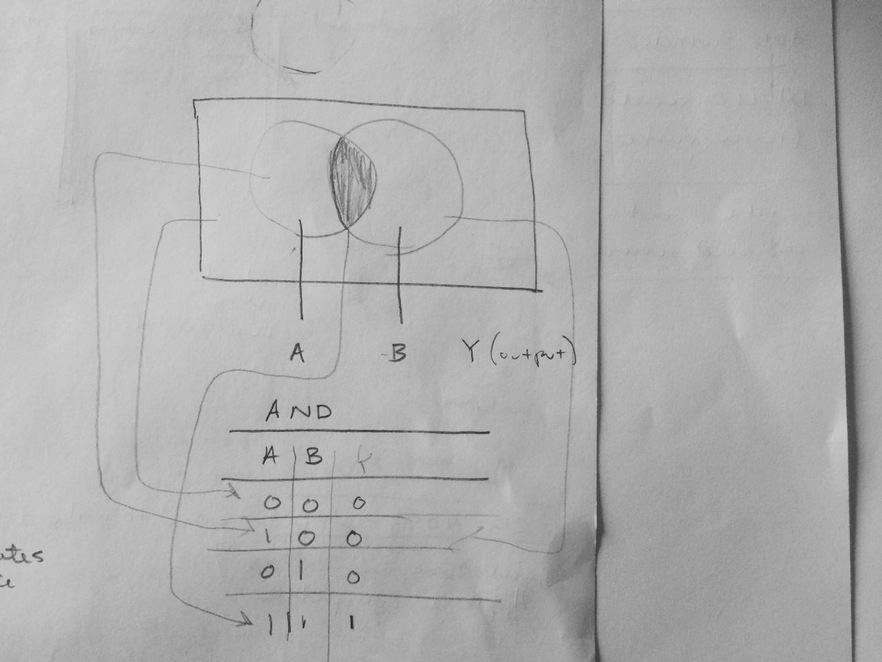 A B Y (output)
AND
A B Y
0 0 0
1 0 0
0 1 0
1 1 1